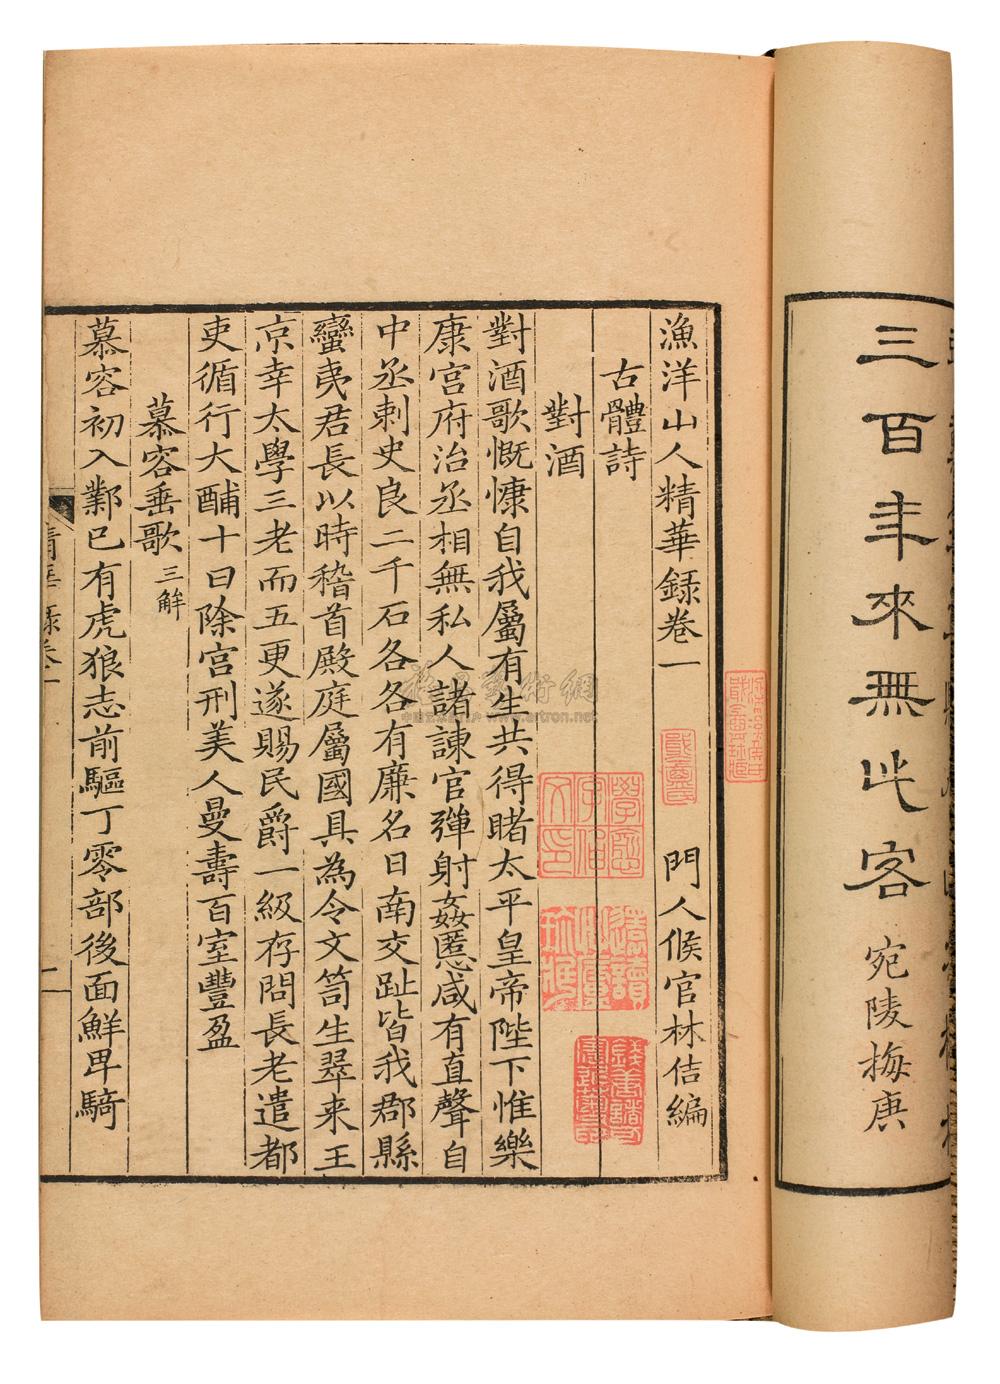 三百年來無此客
宛陵梅庚
漁洋山人精華録卷一
門人候官林佶編
古體詩
對酒
對酒歌慨慷自我屬有生共得睹太平皇帝陛下惟樂
康宮府治丞相無私人諸諫官彈射姦慝咸有直聲自
中丞刺史良二千石各各有廉名日南交趾皆我郡縣
蠻夷君長以時稽首殿庭屬國具為令文笥生翠来王
京幸太學三老而五更遂賜民爵一級存問長老遣都
吏循行大酺十日除宫刑美人曼壽百室豐盈
慕容垂歌 三解
慕容初入鄴已有虎狼志前驅丁零部後面鮮卑騎
精華録卷一
一
www.artron.net